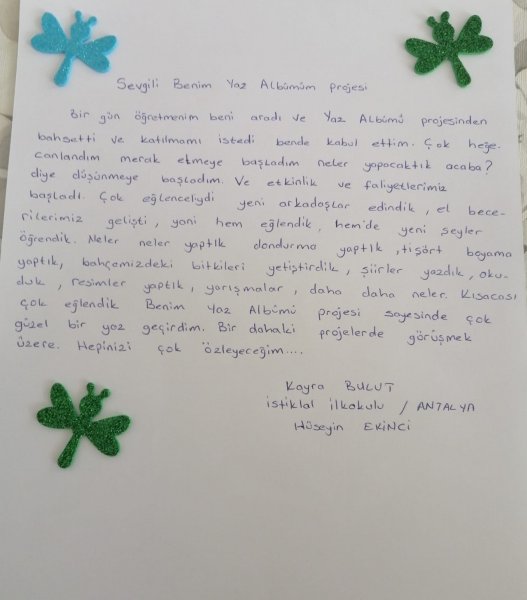 Sevgili Benim Yaz Albümüm projesi
Bir gün öğretmenim beni aradı ve Yaz Albümü projesinden
bahsetti ve katılmamı istedi bende kabul ettim. Çok heğe-
canlandım merak etmeye başladım neler yapocaktık acaba?
diye düşünmeye başladım. Ve etkinlik ve faliyetlerimiz
başladı. Çok eğlenceliydi yeni arkadaşlar edindik, el bece-
rilerimiz gelişti, yani hem eğlendik, hem'de yeni şeyler
öğrendik. Neler neler yaptık dondurma yaptık, tişört boyama
yaptık, bahçemizdeki bitkileri yetiştirdik, şiirler yazdık, oku-
duk, resimler yaptık, yarışmalar, daha daha neler. Kısacası
çok eğlendik Benim Yaz Albümü projesi sayesinde çok
güzel bir yaz geçirdim. Bir dahaki projelerde görüşmek
üzere. Hepinizi çok özleyeceğim....
Kayra BULUT
istiklal ilkokulu / ANTALYA
Hüseyin EKİNCİ